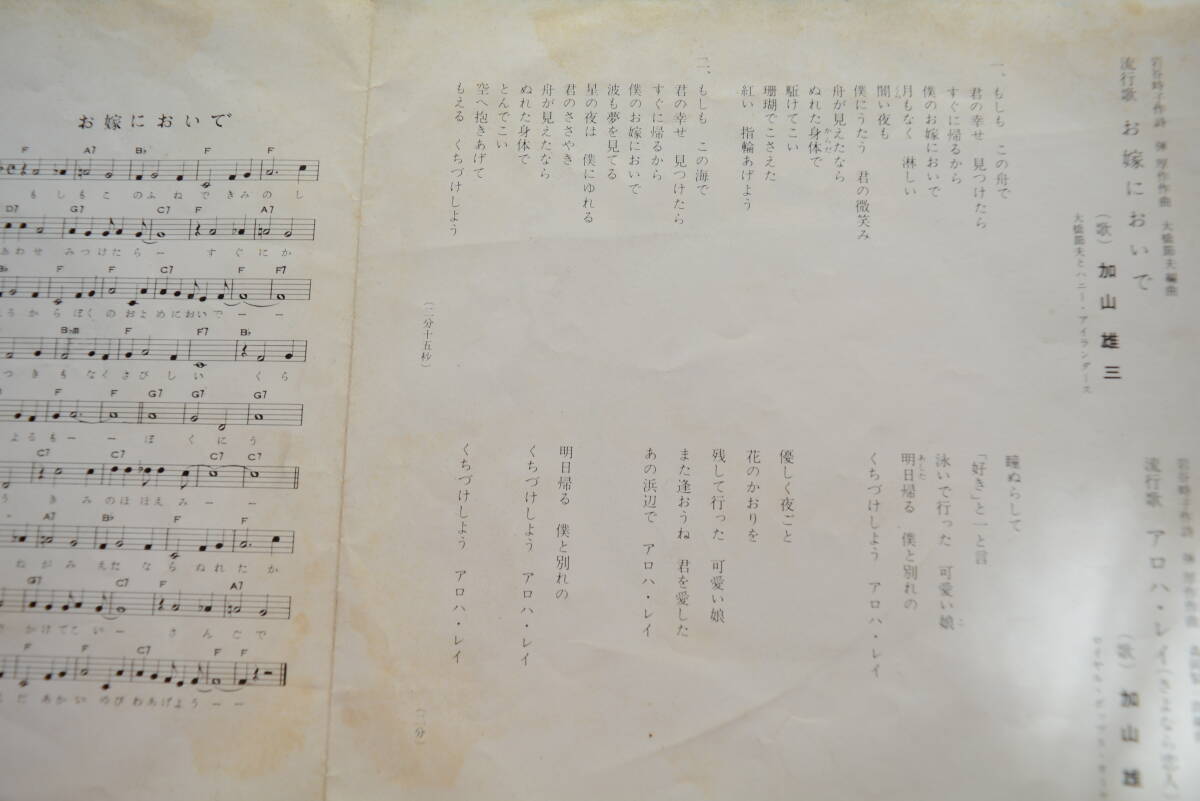 流行歌 お嫁においで
岩谷時子作詩 弾 厚作作曲 大橋節夫編曲
(歌) 加山雄三
大橋節夫とハニー・アイランダース
一、もしも この舟で
君の幸せ 見つけたら
すぐに帰るから
僕のお嫁においで
月もなく 淋しい
闇い夜も
僕にうたう 君の微笑み
舟が見えたなら
ぬれた身体で
駆けてこい
珊瑚でこさえた
紅い 指輪あげよう
二、もしも この海で
君の幸せ 見つけたら
すぐに帰るから
僕のお嫁においで
波も夢を見てる
星の夜は 僕にゆれる
君のささやき
舟が見えたなら
ぬれた身体で
とんでこい
空へ抱きあげて
もえる くちづけしよう
(二分十五秒)
流行歌 アロハ・レイ(さよなら恋人)
岩谷時子作詩 弾 厚作作曲
(歌) 加山雄
瞳ぬらして
「好き」と一と言
泳いで行った 可愛い娘
明日帰る 僕と別れの
くちづけしよう アロハ・レイ
優しく夜ごと
花のかおりを
残して行った 可愛い娘
また逢おうね 君を愛した
あの浜辺で アロハ・レイ
明日帰る 僕と別れの
くちづけしよう アロハ・レイ
くちづけしよう アロハ・レイ
(二分)
お嫁においで
F A7 B♭ F F
もしもこのふねできみのし
D7 G7 C7 F A7
あわせみつけたらー すぐにか
B♭ F F C7 F F7
るからぼくのおよめにおいでーー
B♭m F F7 B♭
つきもなくさびしい くら
F F G7 G7 G7
よるもーー ぼくにう
C7 C7 C7 C7
う きみのほほえみーー
A7 B♭ F F
ねがみえたならぬれたか
G7 C7 F A7
で かけてこいー さんごで
F F C7 F F
ただあかいゆびわあげようーー